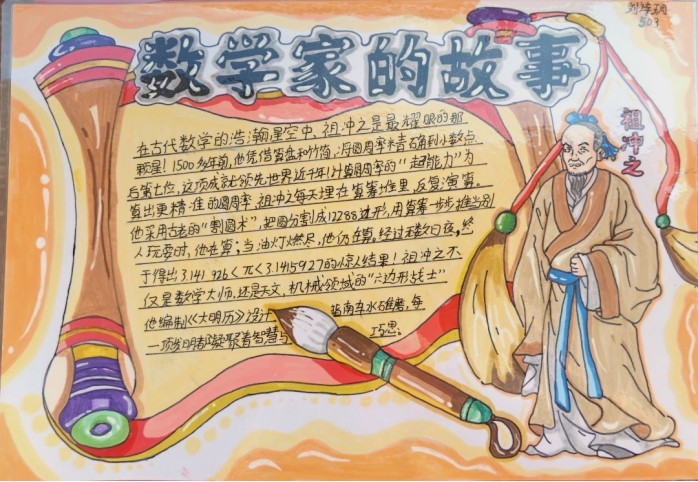 数学家的故事
503
祖冲之
在古代数学的浩瀚星空中,祖冲之是最耀眼的那
颗星!1500多年前,他凭借算盘和竹筒,将圆周率精确到小数点
后第七位,这项成就领先世界近千年!计算圆周率的“超能力”为
算出更精准的圆周率,祖冲之每天埋在算筹堆里,反复演算。
他采用古老的“割圆术”,把圆分割成12288边形,用算筹一步步推当别
人玩耍时,他在算;当油灯燃尽,他仍在算。经过无数日夜,终
于得出3.141 926<π<3.1415927的惊人结果!祖冲之不
仅是数学大师,还是天文、机械领域的“六边形战士”
他编制《大明历》设计 指南车水碓磨,每
一项发明都凝聚着智慧与 巧思。